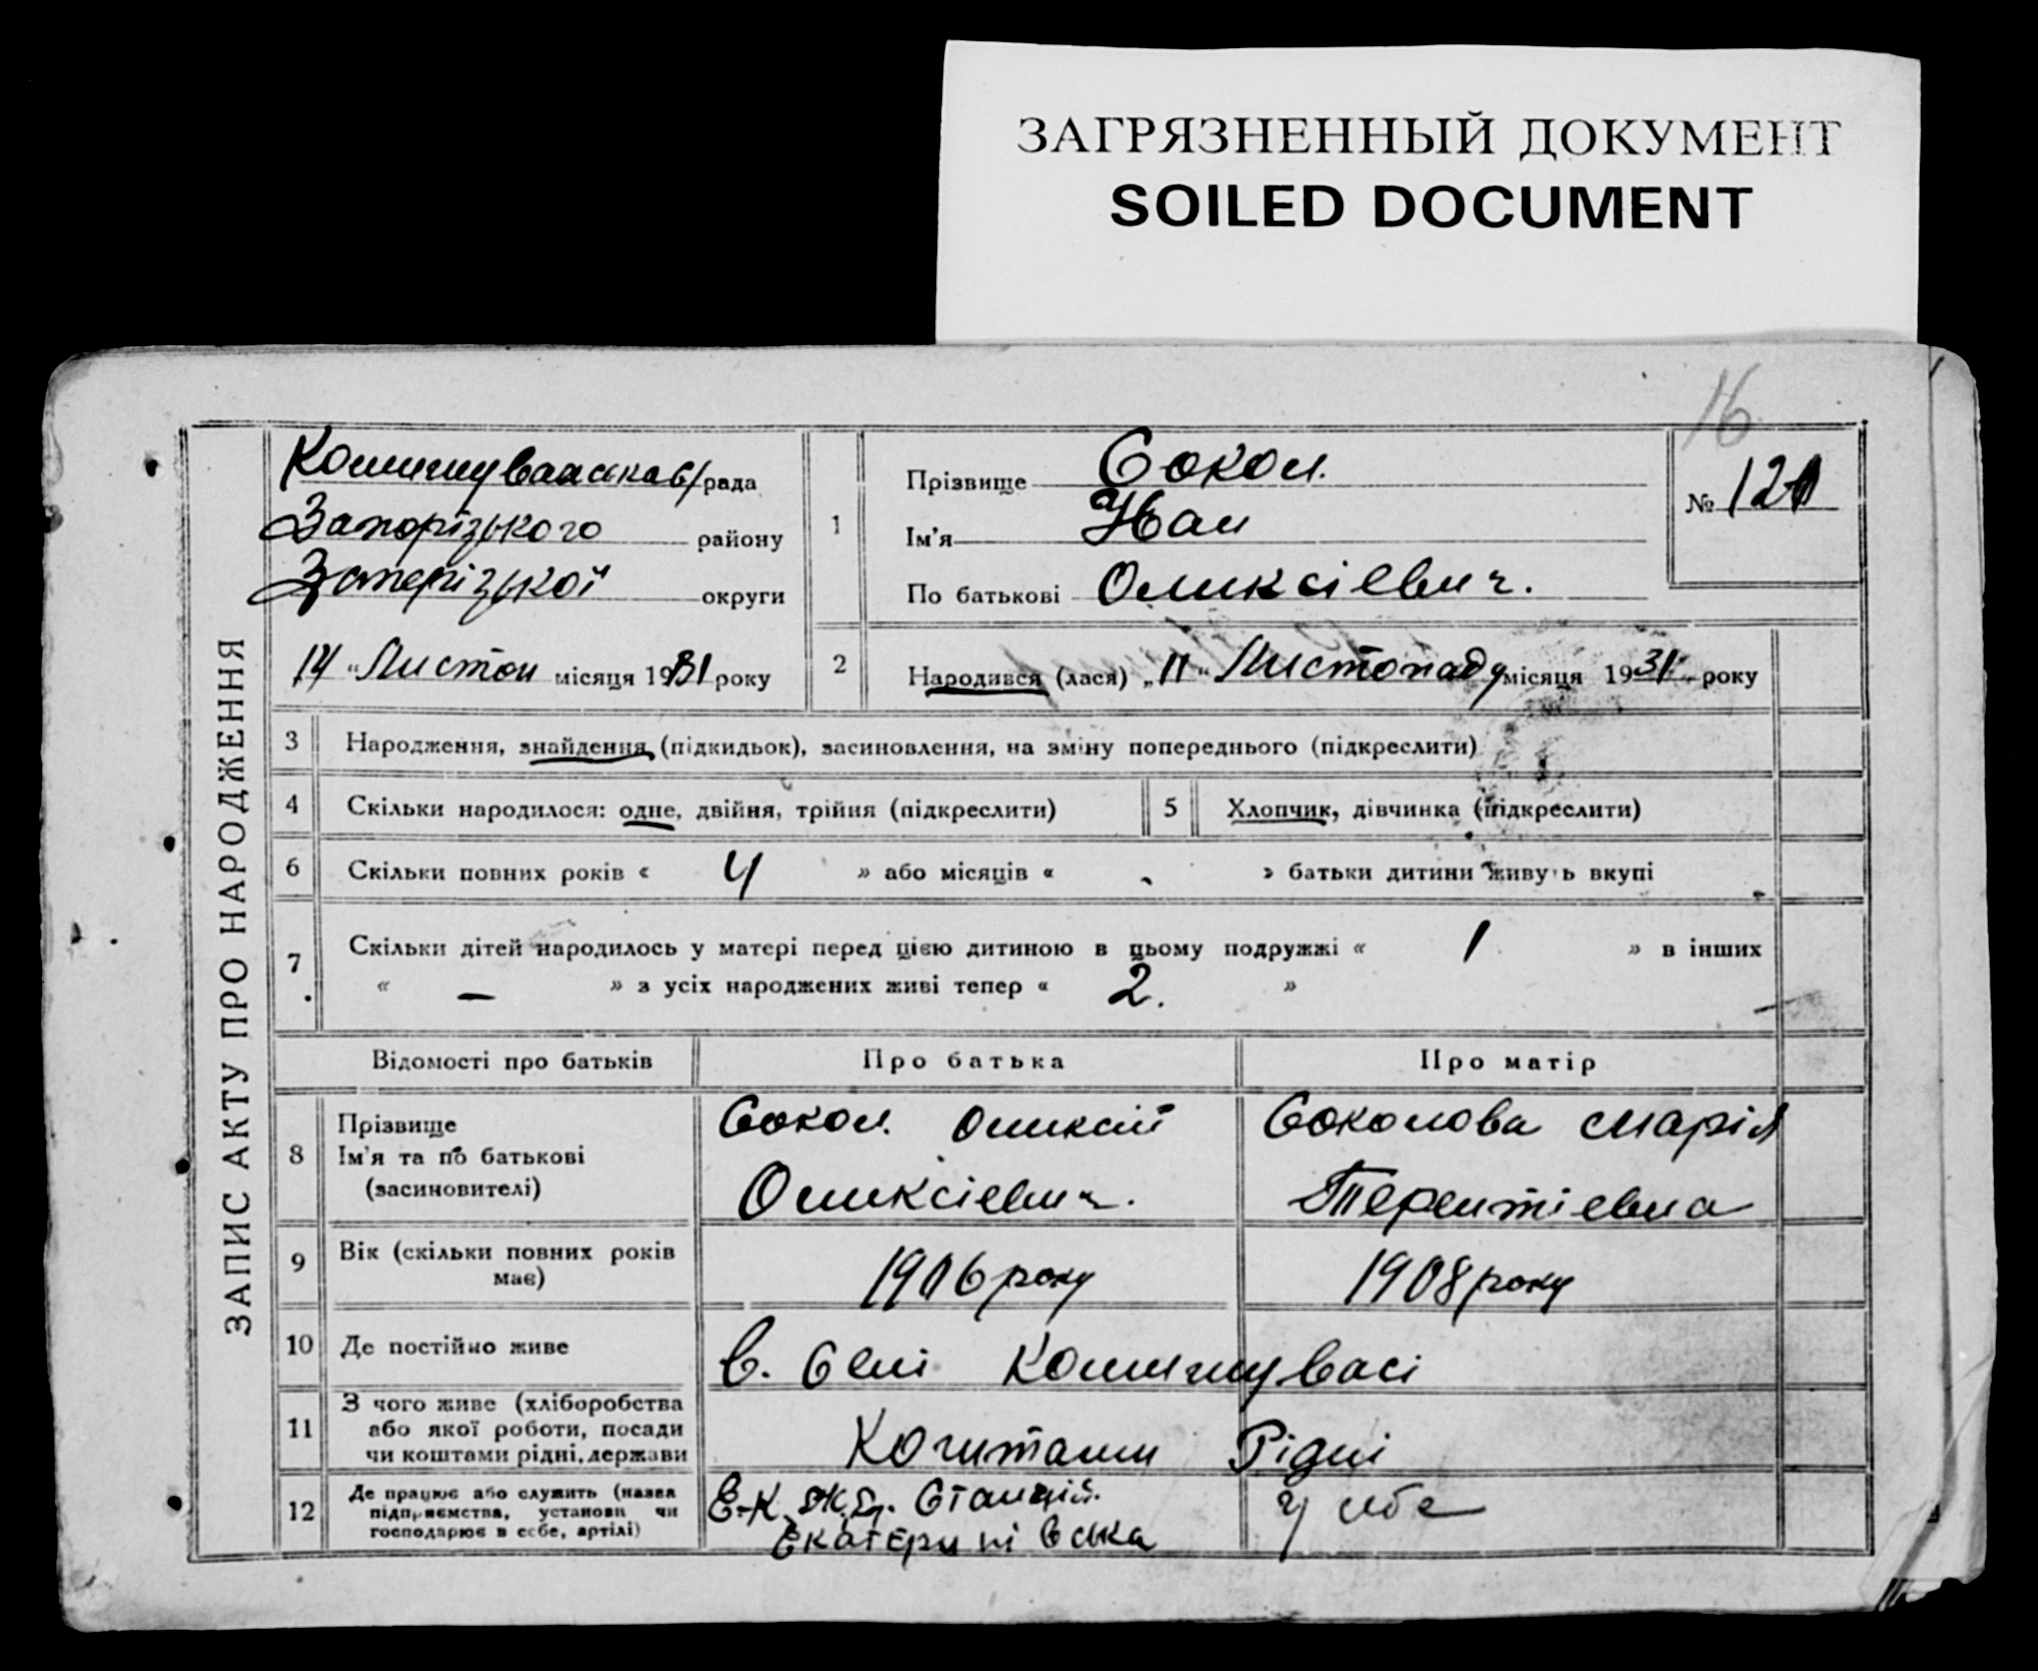 ЗАГРЯЗНЕННЫЙ ДОКУМЕНТ
SOILED DOCUMENT
16
ЗАПИС АКТУ ПРО НАРОДЖЕННЯ
рада
Запорізького району
Запорізької округи
14 „ Листоп місяця 1931 року
1
Прізвище Сокол.
Ім'я Иван
По батькові Оликсієвич.
№ 121
2 Народився (лася) „ 11 " Листопаду місяця 1931 року
3 Народження, знайдення (підкидьок), засиновлення, на зміну попереднього (підкреслити)
4 Скільки народилося: одне, двійня, трійня (підкреслити) 5 Хлопчик, дівчинка (підкреслити)
6 Скільки повних років « 4 » або місяців « » батьки дитини живуть вкупі
7 Скільки дітей народилось у матері перед цією дитиною в цьому подружжі « 1 » в інших
« — » з усіх народжених живі тепер « 2. »
Відомості про батьків Про батька Про матір
8 Прізвище
Ім'я та по батькові
(засиновителі)
Сокол. Оликсій
Оликсієвич.
Соколова Марія
Терентієвна
9 Вік (скільки повних років
має)
1906 року 1908 року
10 Де постійно живе в. Селі Комишувасі
11 З чого живе (хліборобства
або якої роботи, посади
чи коштами рідні, держави
Коштами Рідні
12 Де працює або служить (назва
підприємства, установи чи
господарює в себе, артілі)
Е-К. Ж.Д. Станція.
Екатєринівська
У себе